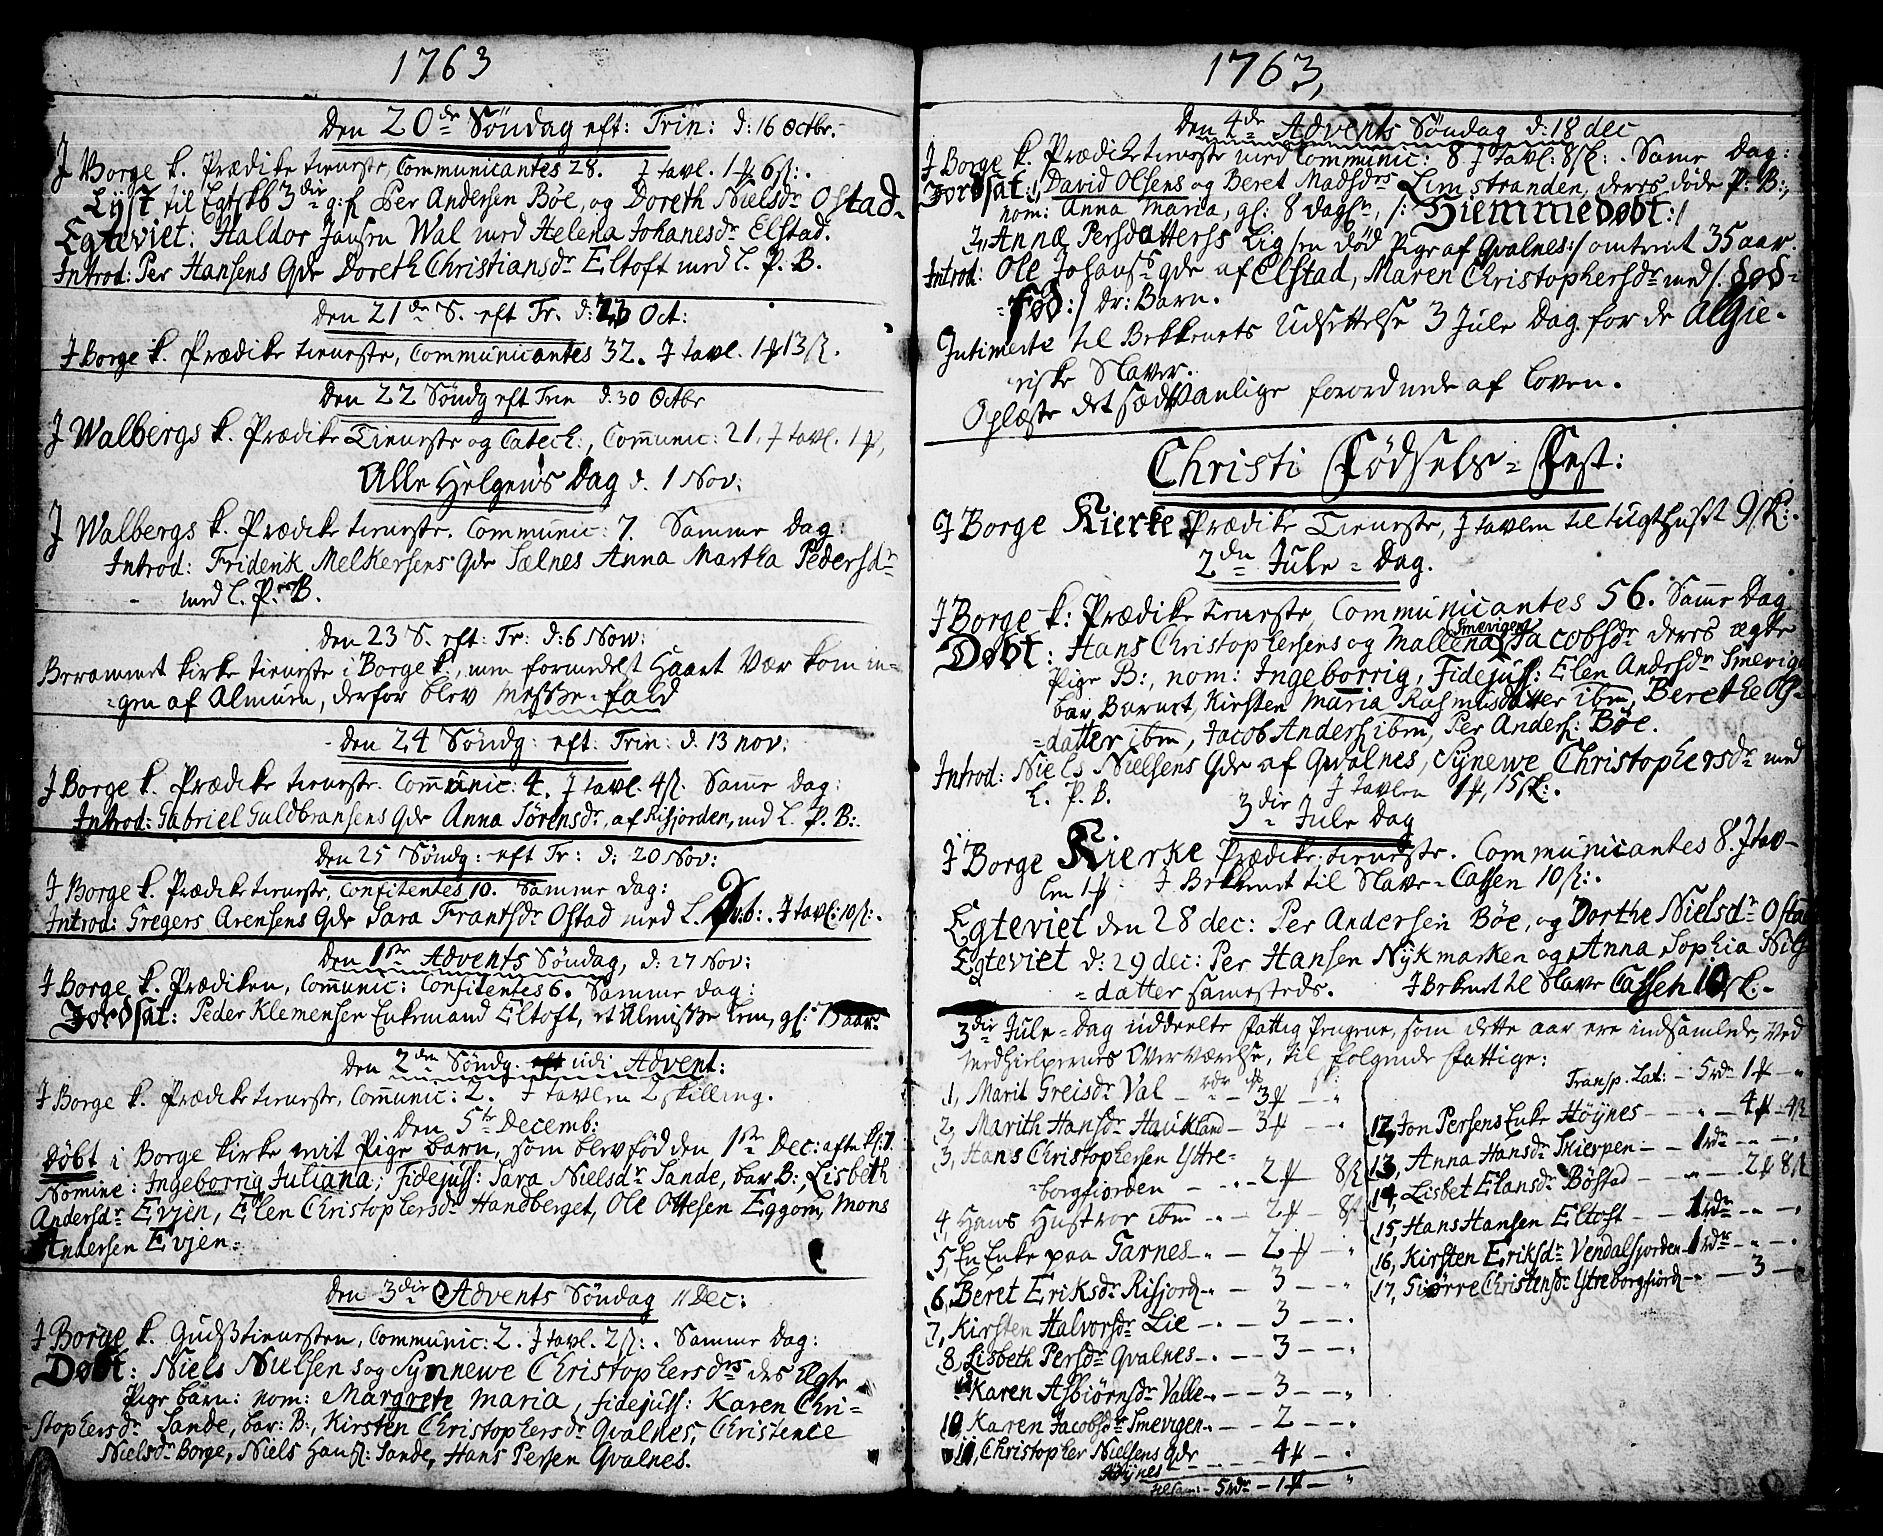 1763
Den 20de Söndag eft: Trin: d: 16 Octbr.
J Borge k. Prædike tieneste, Communicantes 28. J tavl. 1 ℔ 6 s:.
Lyst til Egtskb 3die g: f Per Andersen Böe, og Doreth Nielsdr Ostad.
Egteviet: Haldor Jansen Wal med Helena Johanesdr Elstad.
Introd: Per Hansens Qde Doreth Christiansdr Eltoft med L. P. B.
Den 21de S. eft Tr. d: 23 Oct:
J Borge k. Prædike tieneste, Communicantes 32. J tavl. 1 ℔ 13 s.
Den 22 Söndg eft Trin d. 30 Octbr
J Walbergs k. Prædike Tieneste og Catech:, Com̄unic: 21. J tavl. 1 ℔,
Alle Helgens Dag d. 1 Nov:
J Walbergs k. Prædike tieneste. Communic: 7. Samme dag:
Introd: Friderik Melkersens Qde Sælnes Anna Martha Pedersdr
med L. P. B.
Den 23 S. eft: Tr: d: 6 Nov:
Berammet kirke tieneste i Borge k:, men formedelst haart Vær kom in-
gen af Almuen, derfor blev Messe-fald
Den 24 Söndg: eft: Trin: d: 13 nov:
J Borge k. Prædike tieneste. Com̄unic: 4. J tavl. 4 s. Samme dag:
Introd: Gabriel Guldbransens Qde Anna Sörensdr, af Risjorden, med L. P. B:.
Den 25 Söndg: eft Tr: d: 20 Nov:
J Borge k. Prædike tieneste, Confitentes 10. Samme dag:
Introd: Gregers Arensens Qde Sara Frantsdr Ostad med L. D: b:. J tavl: 10 s:.
Den 1ste Advents Söndag, d: 27 Nov:
J Borge k. Prædiken, Com̄unic: Confitentes 6. Samme dag:
Jordsat: Peder Klemensen Enkemand Eltoft, et Almisse Lem, gl: 75 aar.
Den 2den Söndg. udi Advent:
J Borge k. Prædike tieneste, Com̄unic: 2. J tavlen 2 skilling.
Den 5te Decemb:
Döbt i Borge kirke mit Pige barn, som blev föd den 1ste Dec: aften kl: 7
Nomine: Ingeborrig Juliana; Fidejuss: Sara Nielsdr Sande, bar B:, Lisbeth
Andersdr Evjen, Elen Christophersdr Handberget, Ole Ottesen Eggom, Mons
Andersen Evjen:
Den 3die Advents Söndag 11 Dec:
J Borge k. Gudstienesten, Communic: 2. J tavl. 2 s:. Samme dag:
Döbt: Niels Nielsens og Synnewe Christophersdrs des Ægte
Pige barn: nom: Margrete Maria, fidejuss: Karen Chri-
stophersdr Sande, bar: B:, Kirsten Christophersdr Qvalnes, Christence
Nielsdr Borge, Niels Hans: Sande, Hans Persen Qvalnes.
1763,
Den 4de Advents Söndag d: 18 dec
J Borge k. Prædiketieneste med Communic: 8 J tavl: 8 sk:. Same dag:
Jordsat: David Olsens og Beret Madsdrs Limstranden, deres döde P: B:,
nom: Anna Maria, gl: 8 dage, /: Hiemmedöbt:/
It. Annæ Persdatters Lig /en död Pige af Qvalnes:/ omtrent 35 aar.
Introd: Ole Johans: Qde af Elstad, Maren Christophersdr med /: död-
föd:/ dr: Barn.
Intimerte til Bekkenets Udsettelse 3 Jule Dag. for de Algie-
riske Slaver.
Oplæste det sædvanlige forordnede af Loven.
Christi Födsels-Fest:
J Borge Kierke Prædike Tieneste, J tavlen til tugthust 9 sk:.
2den Jule-Dag.
J Borge k: Prædike tieneste Communicantes 56. Samme Dag
Smevigen
Döbt: Hans Christophersens og Mallena Jacobsdr deres ægte
Pige B:, nom: Ingeborrig, Fidejuss: Elen Andersdr Smevigen
bar Barnet, Kirsten Maria Rasmusdatter ibm, Berethe Ols-
datter ibm, Jacob Anders: ibm, Per Anders: Böe.
Introd: Niels Nielsens Qde af Qvalnes, Synewe Christophersdr med
L. P. B. J tavlen 1 ℔, 15 sk:.
3die Jule Dag
J Borge Kierke Prædike tieneste. Communicantes 8. J tav-
len 1 ℔ J Bekkenet til Slave-Cassen 10 s:.
Egteviet den 28 dec: Per Andersen Böe, og Dorthe Nielsdr Ostad
Egteviet d: 29 dec: Per Hansen Nykmarken og Anna Sophia Nils
datter samesteds. J Bekenet til Slave Cassen 10 sk:-
3die Jule-Dag uddeelte fattig Pengene, som dette aar ere indsamlede, Ved
Medhielpernes Overværelse, til følgende fattige:
1, Marit Greisdr Val - rdr - 3 ℔
2, Marith Hansdr Haukland - 3 ℔ - "
3, Hans Christophersen Yttre-
borgfiorden - 2 ℔ 8 s
4, Hans Hustroe ibm - 2 ℔ - 8 s
5, En Enke paa Tarnes - 2 ℔ - "
6, Beret Eriksdr Risjord - 3 - "
7, Kirsten Halvorsdr Lie - 3 - "
8, Lisbeth Persdr Qvalnes - 3 - "
Karen Asbiörnsdr Valle - 3 - "
10, Karen Jacobsdr Smevigen - 2 - "
11, Christopher Nielsens Qde
Höynes - 4 ℔ - "
Tilsam: - 5 rdr - 1 ℔ - "
Transp. Lat: - 5 rdr 1 ℔ - "
12, Jon Persens Enke Höynes - 4 ℔ - 4 s
13, Anna Hansdr Skierpen - 1 rdr - "
14, Lisbet Elansdr Böstad - 2 ℔ 8 s
15, Hans Hansen Eltoft - 1 rdr - "
16, Kirsten Eriksdr Vendalsjorden 1 rdr - "
17, Giörre Christensdr Ytreborgfiord - 3 - "